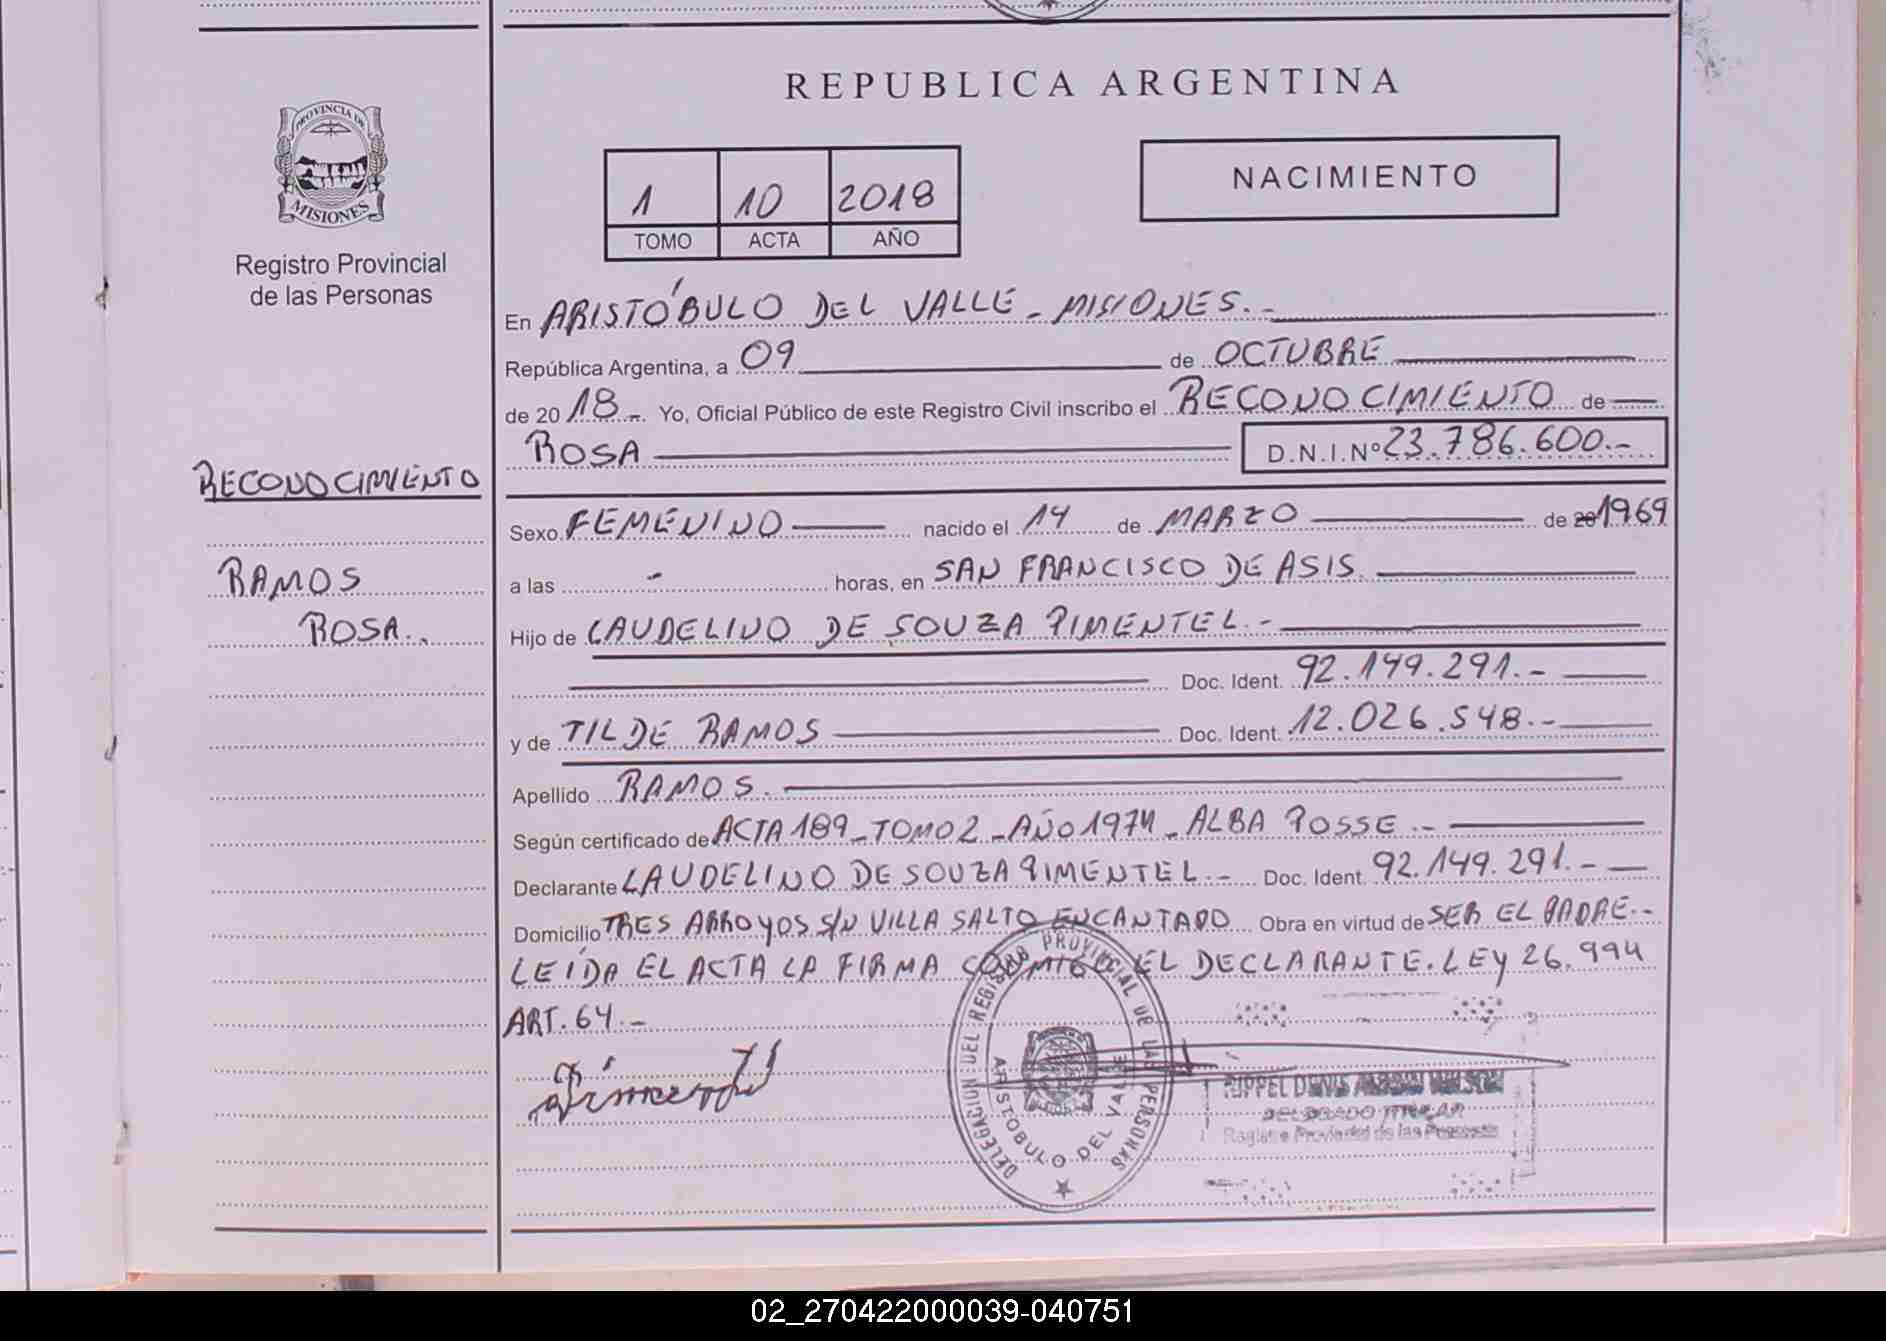 REPUBLICA ARGENTINA
PROVINCIA DE
MISIONES
Registro Provincial
de las Personas
1 10 2018
TOMO ACTA AÑO
NACIMIENTO
En ARISTÓBULO DEL VALLE - MISIONES.-
República Argentina, a 09 de OCTUBRE
de 2018.- Yo, Oficial Público de este Registro Civil inscribo el RECONOCIMIENTO de
ROSA D.N.I.Nº 23.786.600.-
RECONOCIMIENTO
RAMOS
ROSA..
Sexo FEMENINO nacido el 14 de MARZO de 20 1969
a las - horas, en SAN FRANCISCO DE ASIS.
Hijo de LAUDELINO DE SOUZA PIMENTEL.-
Doc. Ident. 92.149.291.-
y de TILDE RAMOS Doc. Ident. 12.026.548.-
Apellido RAMOS.
Según certificado de ACTA 189 - TOMO 2 - AÑO 1974 - ALBA POSSE.-
Declarante LAUDELINO DE SOUZA PIMENTEL.- Doc. Ident. 92.149.291.-
Domicilio TRES ARROYOS S/N VILLA SALTO ENCANTADO Obra en virtud de SER EL PADRE.-
LEÍDA EL ACTA LA FIRMA CONMIGO EL DECLARANTE. LEY 26.994
ART. 64.-
DELEGACION DEL REGISTRO PROVINCIAL DE LAS PERSONAS
ARISTOBULO DEL VALLE
RIPPEL DENIS
DELEGADO TITULAR
Registro Provincial de las Personas
02_270422000039-040751